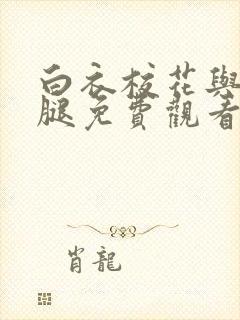 白衣校花與
腿免費觀看
肖龍